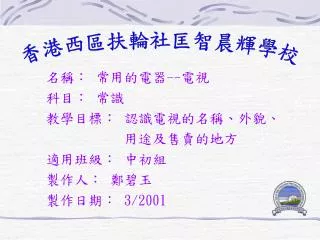 香港西區扶輪社匡智晨輝學校
名稱： 常用的電器--電視
科目： 常識
教學目標： 認識電視的名稱、外貌、
用途及售賣的地方
適用班級： 中初組
製作人： 鄭碧玉
製作日期： 3/2001